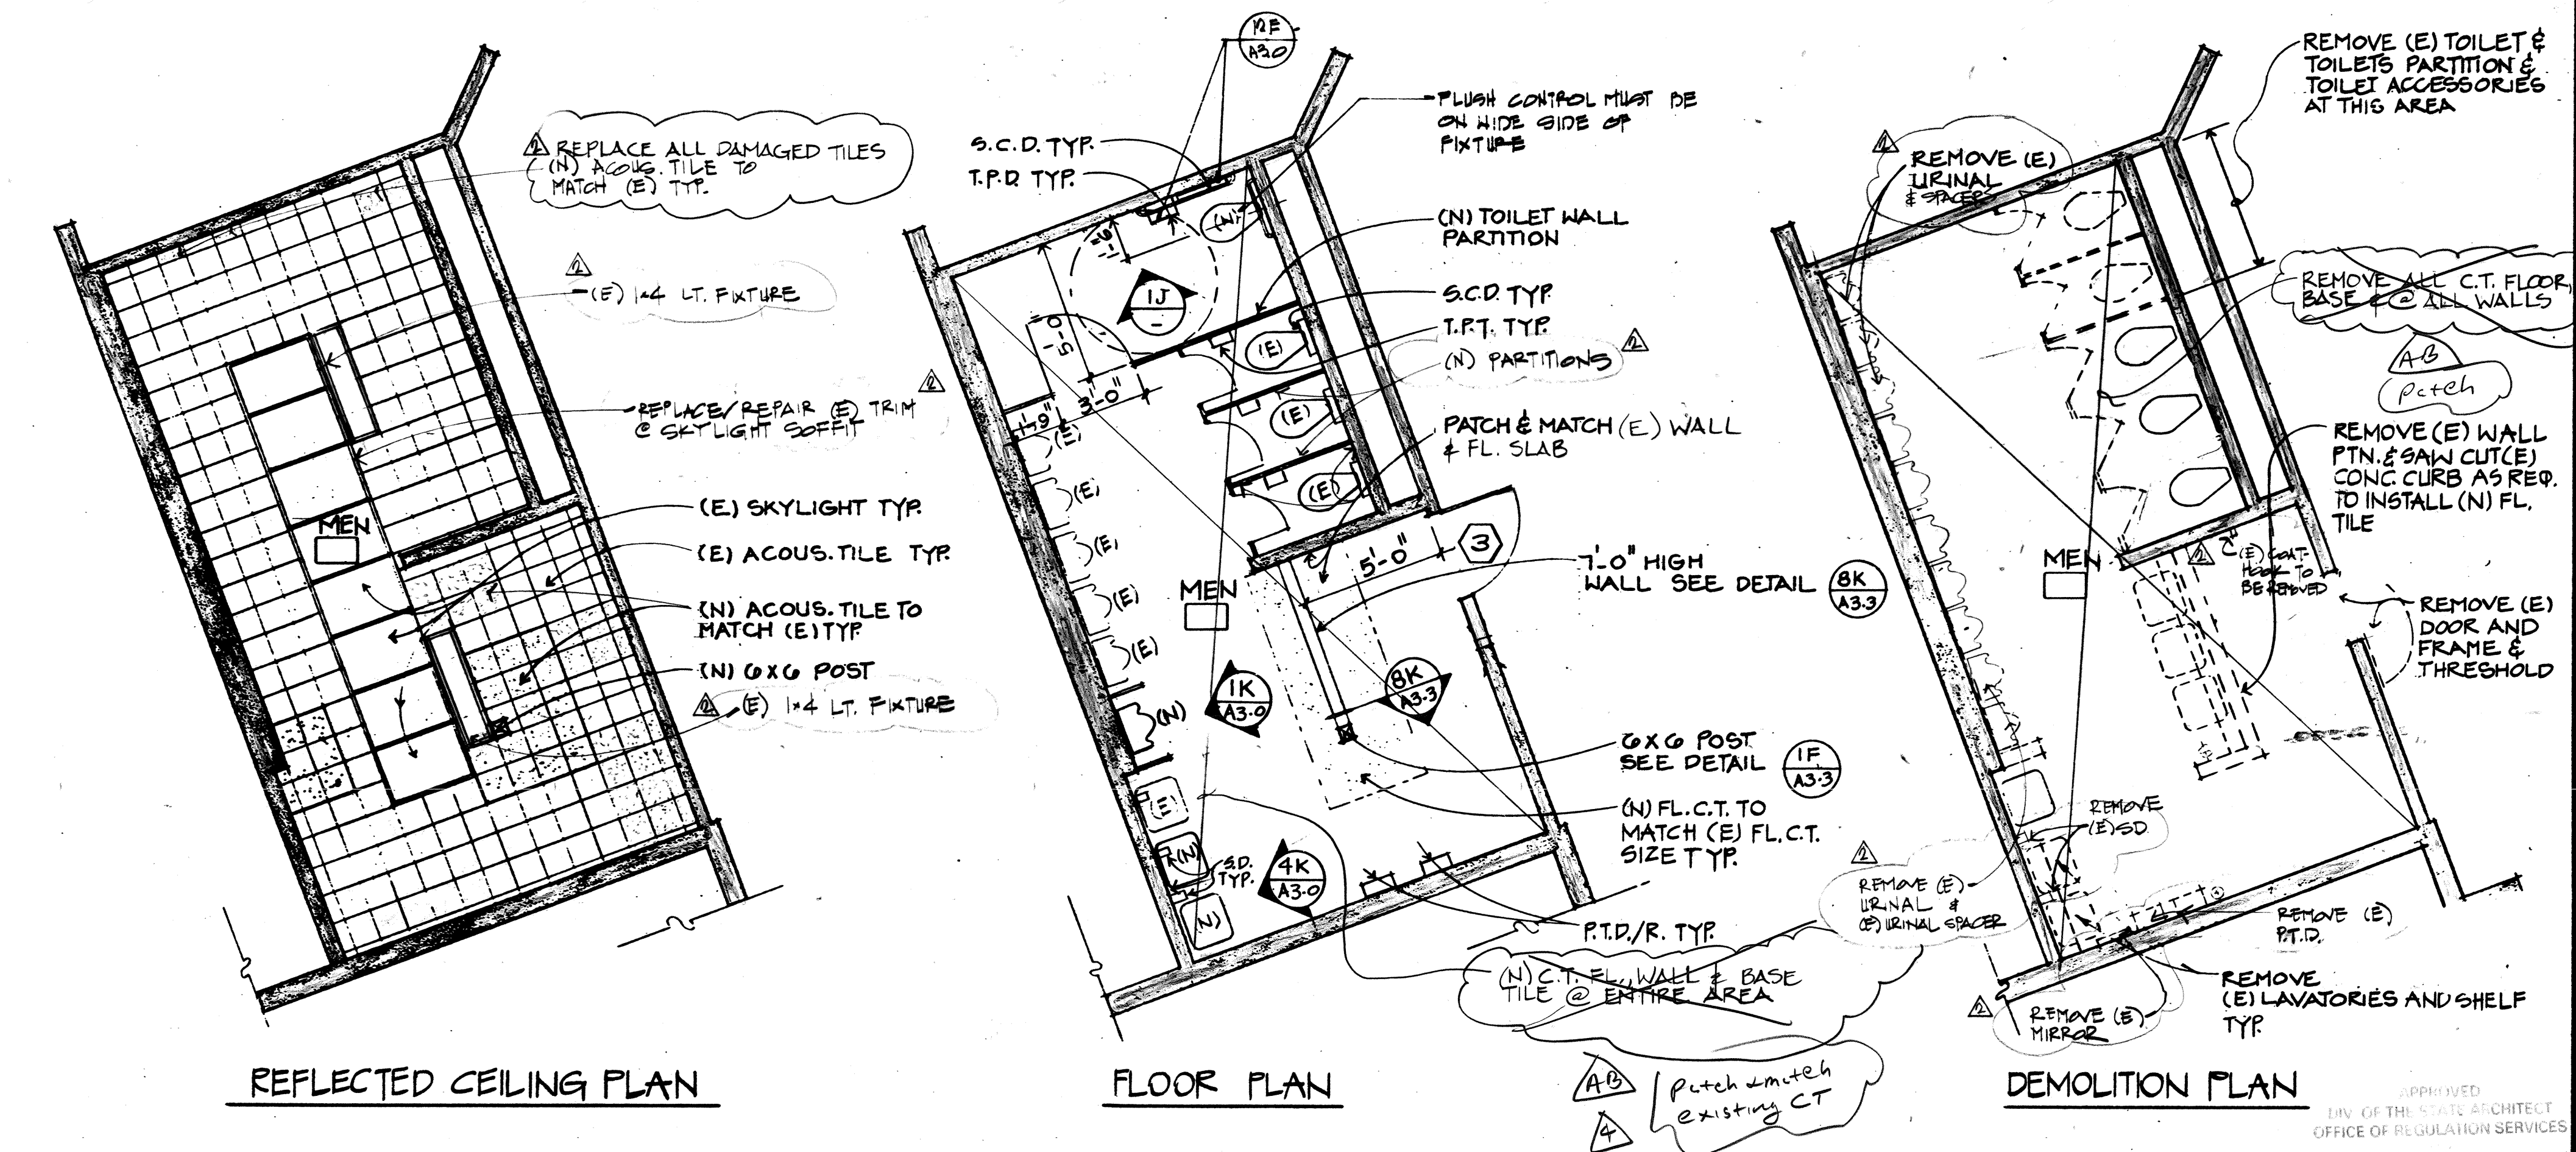 2 REPLACE ALL DAMAGED TILES
(N) ACOUS. TILE TO
MATCH (E) TYP.
2
(E) 1x4 LT. FIXTURE
2
REPLACE/REPAIR (E) TRIM
@ SKYLIGHT SOFFIT
MEN
(E) SKYLIGHT TYP.
(E) ACOUS. TILE TYP.
(N) ACOUS. TILE TO
MATCH (E) TYP.
(N) 6X6 POST
2 (E) 1x4 LT. FIXTURE
REFLECTED CEILING PLAN
12F
A3.0
S.C.D. TYP.
T.P.D. TYP.
FLUSH CONTROL MUST BE
ON WIDE SIDE OF
FIXTURE
(N)
(N) TOILET WALL
PARTITION
1'-6"
1J
-
S.C.D. TYP.
T.P.T. TYP.
(N) PARTITIONS 2
5'-0"
3'-0"
1'-9"
(E)
(E)
(E)
PATCH & MATCH (E) WALL
& FL. SLAB
(E)
(E)
(E)
(E)
(E)
3
5'-0"
7'-0" HIGH
WALL SEE DETAIL
8K
A3.3
MEN
1K
A3.0
8K
A3.3
(N)
6X6 POST
SEE DETAIL
1F
A3.3
(E)
(N) FL. C.T. TO
MATCH (E) FL. C.T.
SIZE TYP.
(N)
S.D.
TYP.
4K
A3.0
(N)
P.T.D./R. TYP.
(N) C.T. FL., WALL & BASE
TILE @ ENTIRE AREA
AB
patch & match
existing CT
4
FLOOR PLAN
REMOVE (E) TOILET &
TOILETS PARTITION &
TOILET ACCESSORIES
AT THIS AREA
2
REMOVE (E)
URINAL
& SPACER
REMOVE ALL C.T. FLOOR,
BASE & @ ALL WALLS
AB
patch
REMOVE (E) WALL
PTN. & SAW CUT (E)
CONC. CURB AS REQ.
TO INSTALL (N) FL.
TILE
2
(E) COAT
HOOK TO
BE REMOVED
MEN
REMOVE (E)
DOOR AND
FRAME &
THRESHOLD
REMOVE
(E) SD
2
REMOVE (E)
URINAL &
(E) URINAL SPACER
REMOVE (E)
P.T.D.
REMOVE
(E) LAVATORIES AND SHELF
TYP.
2
REMOVE (E)
MIRROR
DEMOLITION PLAN
APPROVED
DIV. OF THE STATE ARCHITECT
OFFICE OF REGULATION SERVICES